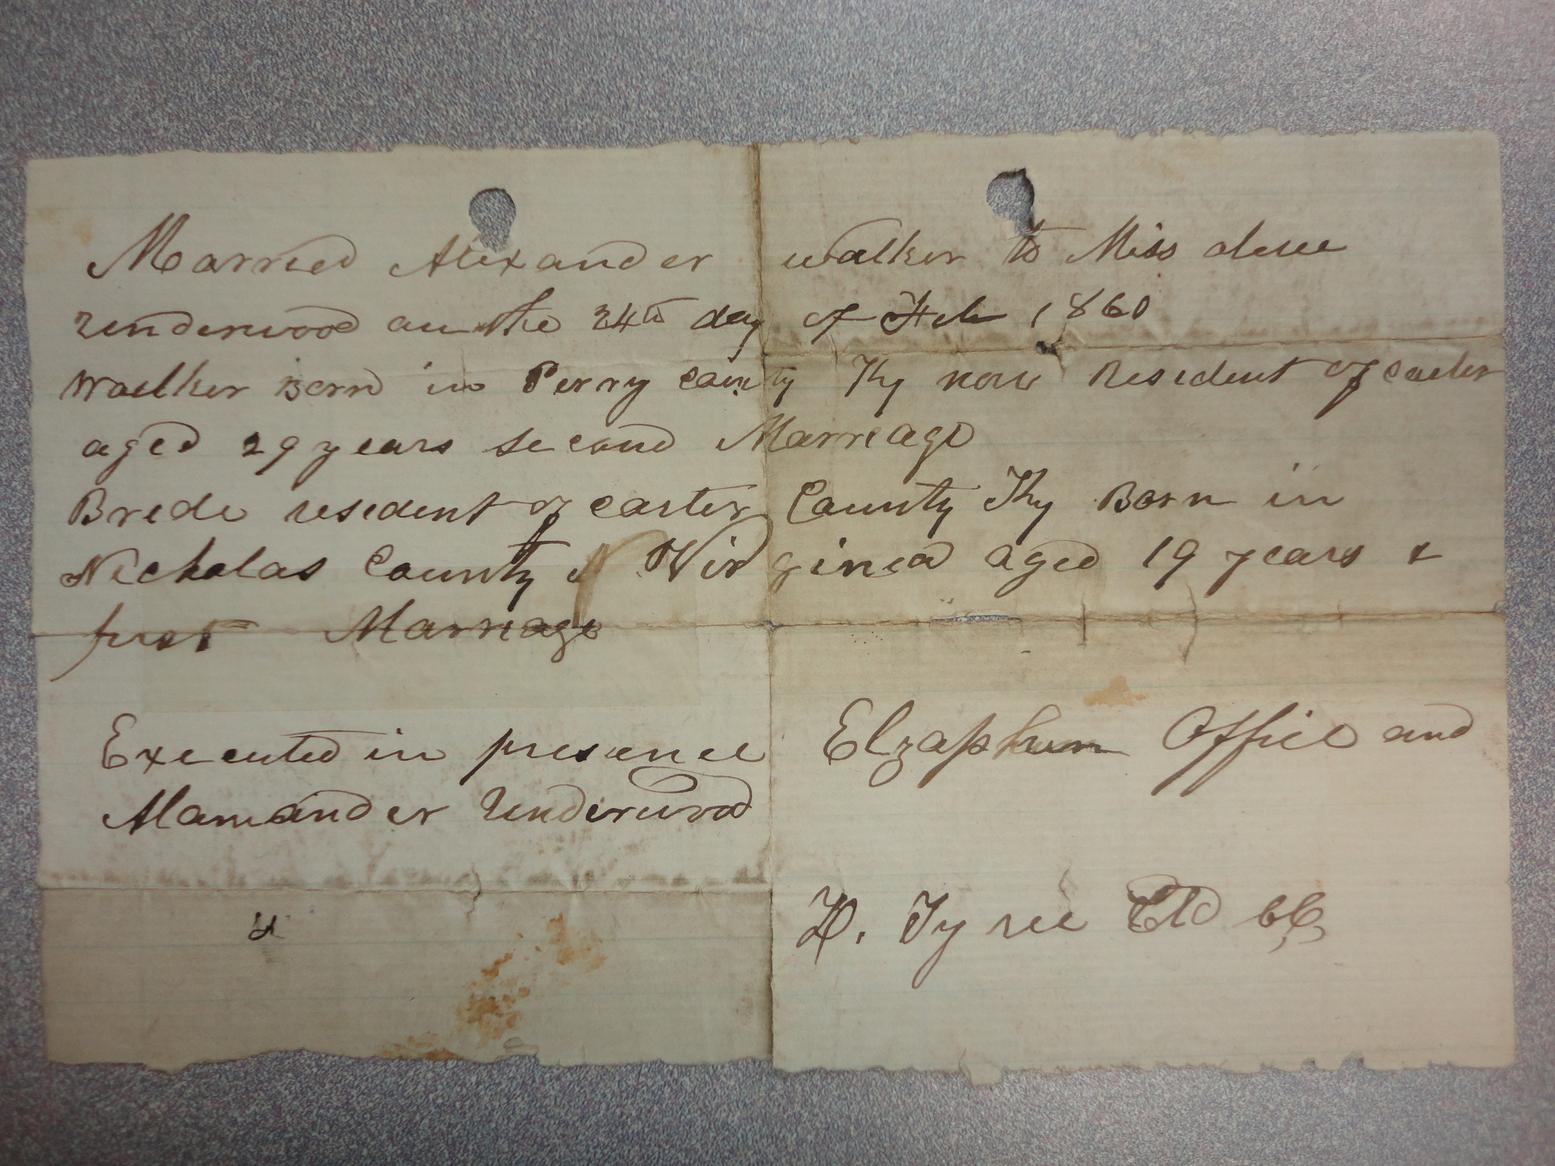 Married Alexander walker to Miss
Underwood an the 24th day of Feb 1860
Walker Born in Perry County Ky now Resident of carter
aged 29 years second Marriage
Brede resedent of carter County Ky Born in
Nicholas County Virginea aged 19 years &
furst Marriage
Executed in presence Elzaphun Office and
Underwood
Tyree